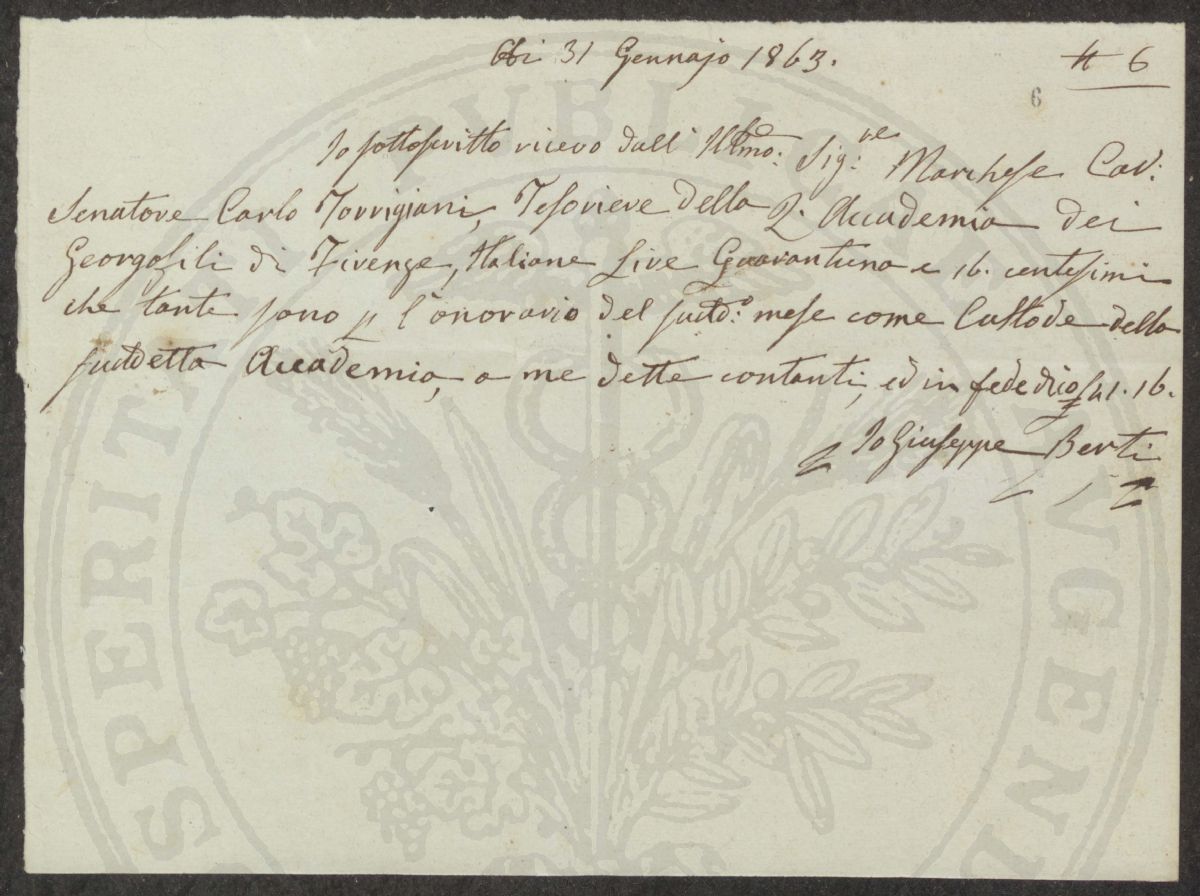 Adi 31 Gennajo 1863.
# 6
6
Io sottoscritto ricevo dall' Illmo: Sig:re Marchese Cav:
Senatore Carlo Torrigiani, Tesoriere della R. Accademia dei
Georgofili di Firenze, Italiane Lire Quarantuna e 16. centesimi
che tante sono p l'onorario del sudd:o mese come Custode della
suddetta Accademia, a me dette contanti, ed in fede dico £41.16.
Io Giuseppe Berti
PROSPERITATI PVBLICAE AVGENDAE